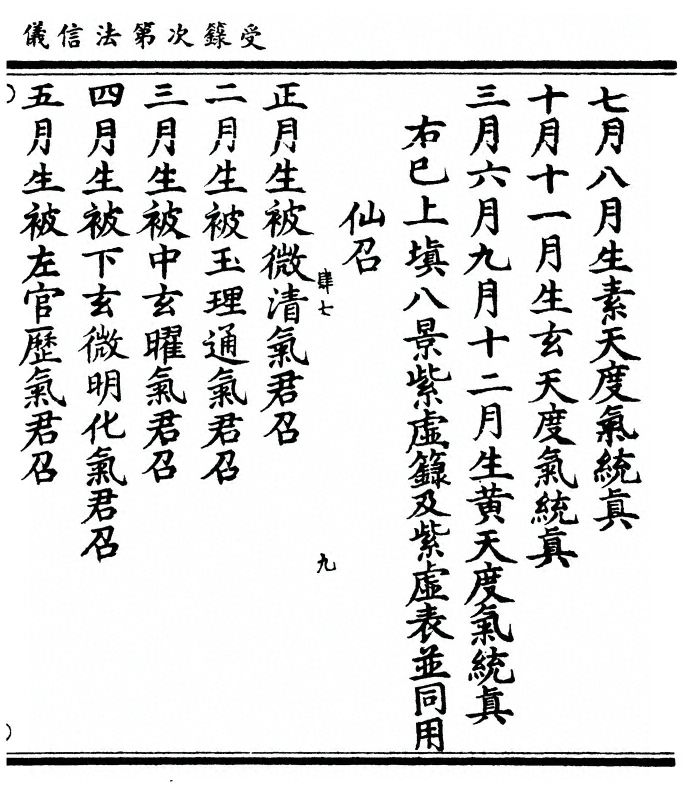 受籙次第法信儀
七月八月生素天度氣統真
十月十一月生玄天度氣統真
三月六月九月十二月生黄天度氣統真
右巳上填八景紫虛籙及紫虛表並同用
仙召
肆七
九
正月生被微清氣君召
二月生被玉理通氣君召
三月生被中玄曜氣君召
四月生被下玄微明化氣君召
五月生被左官歷氣君召